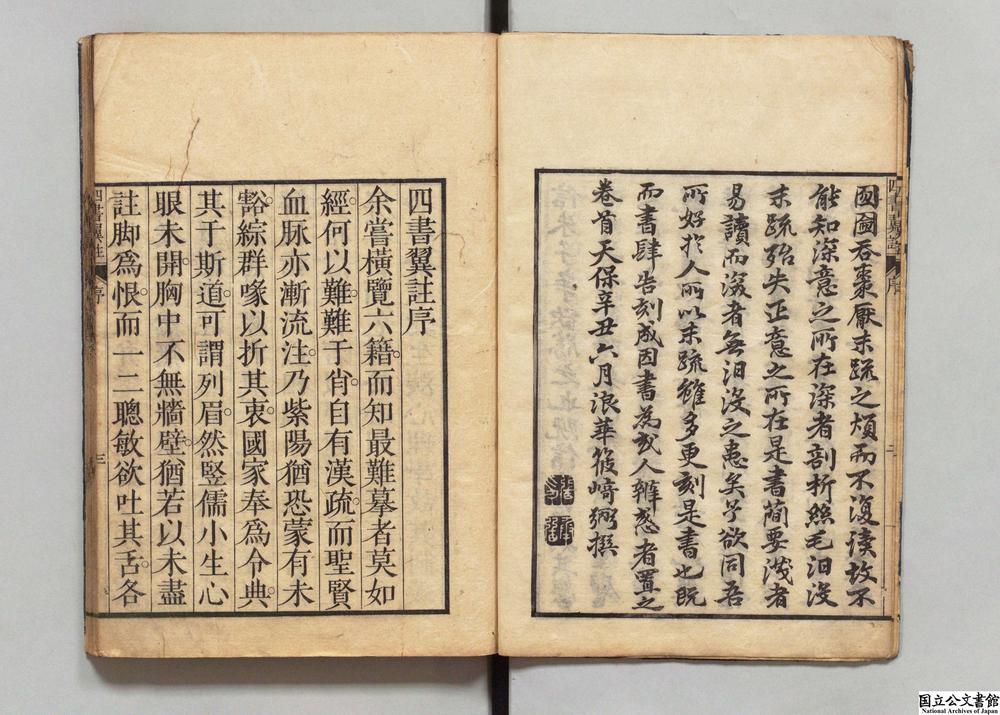 國國吞棗厭末疏之煩而不復讀故不
能知深意之所在深者剖析絲毛汩沒
末疏殆失正意之所在是書簡要淺者
易讀而深者無汩沒之患矣予欲同吾
所好於人所以末疏雖多更刻是書也既
而書肆告刻成因書為或人辨惑者置之
卷首天保辛丑六月浪華篠﨑弼撰
四書翼註 序
二
四書翼註序
余嘗橫覽六籍而知最難摹者莫如
經何以難難于肖自有漢疏而聖賢
血脉亦漸流注乃紫陽猶恐蒙有未
豁綜群喙以折其衷國家奉爲令典
其于斯道可謂列眉然竪儒小生心
眼未開胸中不無牆壁猶若以未盡
註脚爲恨而一二聰敏欲吐其舌各
四書翼註 序
三
国立公文書館
National Archives of Japan